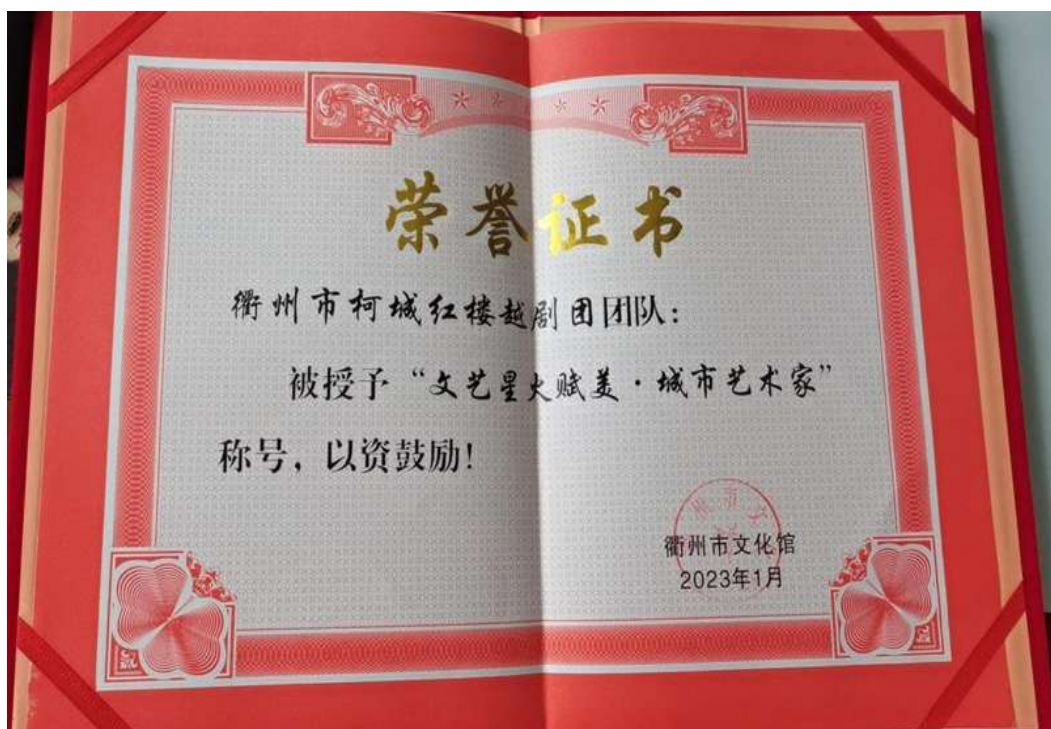 荣誉证书
衢州市柯城红楼越剧团团队：
被授予“文艺星火赋美·城市艺术家”
称号，以资鼓励！
衢州市文化馆
2023年1月